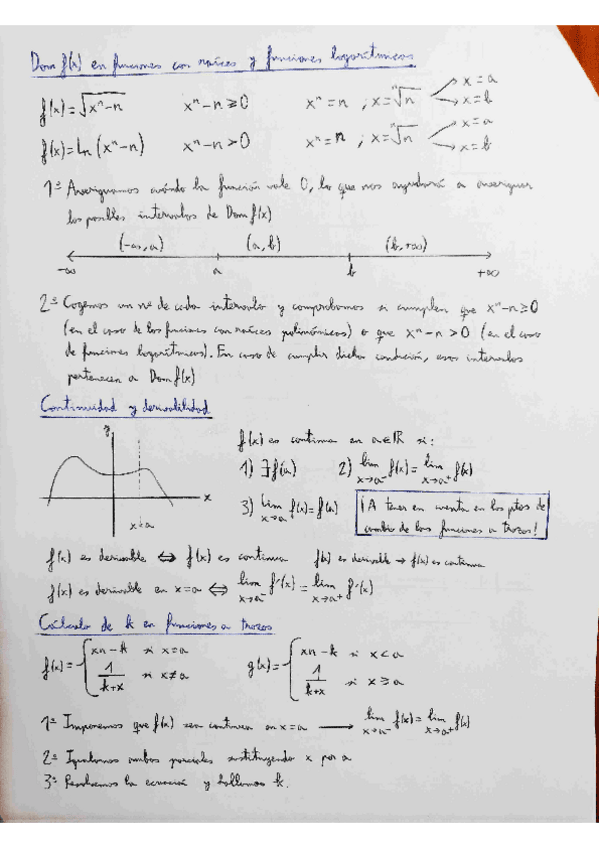 Dom f(x) en funciones con raíces y funciones logarítmicas
f(x)=√(xⁿ-n) xⁿ-n≥0 xⁿ=n ; x=ⁿ√n → x=a → x=b
f(x)=Ln(xⁿ-n) xⁿ-n>0 xⁿ=n ; x=ⁿ√n → x=a → x=b
1º Averiguamos cuándo la función vale 0, lo que nos ayudará a averiguar
los posibles intervalos de Dom f(x)
(-∞,a) (a,b) (b,+∞)
-∞ a b +∞
2º Cogemos un nº de cada intervalo y comprobamos si cumplen que xⁿ-n≥0
(en el caso de las funciones con raíces polinómicas) o que xⁿ-n>0 (en el caso
de funciones logarítmicas). En caso de cumplir dicha condición, esos intervalos
pertenecen a Dom f(x)
Continuidad y derivabilidad
y
x
x=a
f(x) es continua en a∈ℝ si:
1) ∃f(a) 2) lim x→a⁻ f(x)=lim x→a⁺ f(x)
3) lim x→a f(x)=f(a)
¡A tener en cuenta en los ptos de
cambio de las funciones a trozos!
f(x) es derivable ⇔ f(x) es continua f(x) es derivable → f(x) es continua
f(x) es derivable en x=a ⇔ lim x→a⁻ f'(x)=lim x→a⁺ f'(x)
Cálculo de k en funciones a trozos
f(x)={ xn-k si x=a g(x)={ xn-k si x<a
1/(k+x) si x≠a 1/(k+x) si x≥a
1º Imponemos que f(x) sea continua en x=a → lim x→a⁻ f(x)=lim x→a⁺ f(x)
2º Igualamos ambas parciales sustituyendo x por a
3º Resolvemos la ecuación y hallamos k.